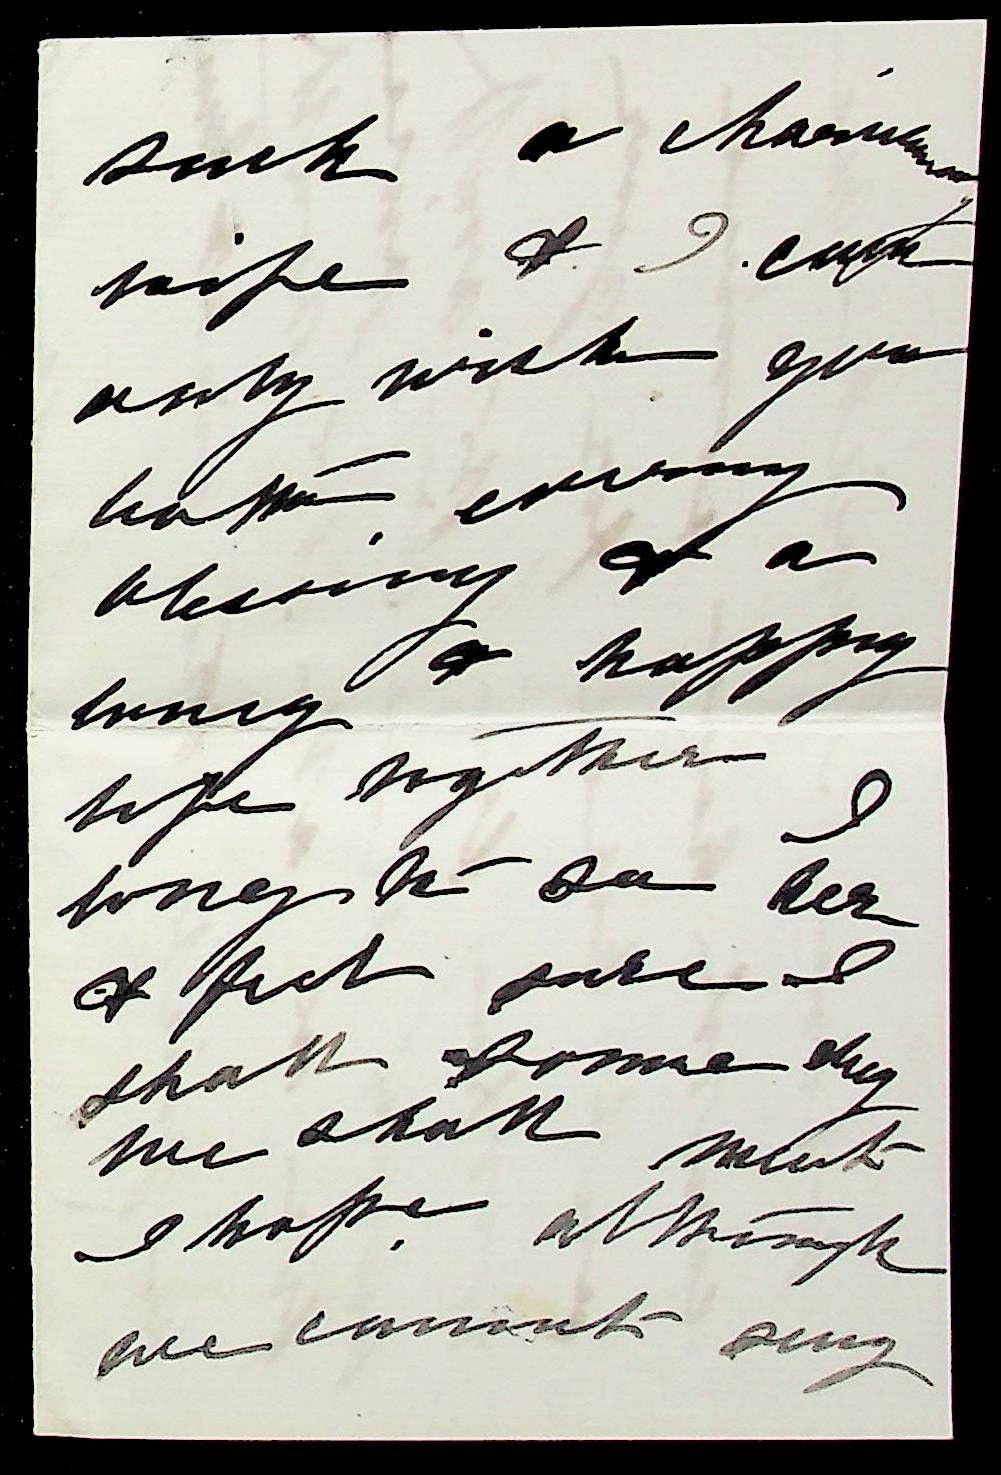 such a charming
wife & I can
only wish you
both every
blessing & a
long & happy
life together I
long to see her
& feel sure I
shall some day
we shall meet
I hope. although
we cannot sing